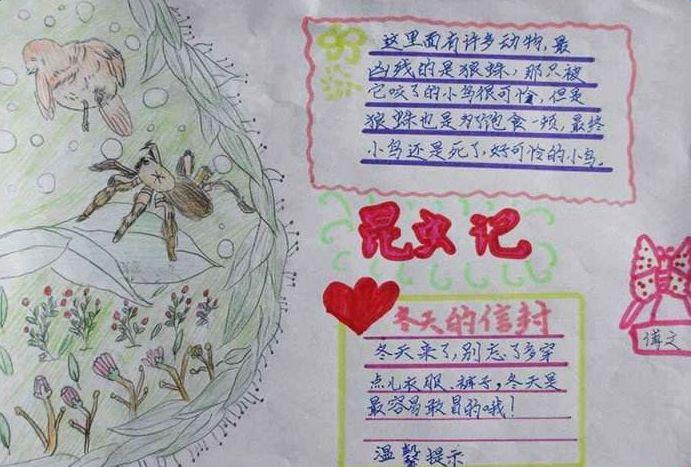 这里面有许多动物，最
凶残的是狼蛛，那只被
它咬了的小鸟很可怜，但是
狼蛛也是为了饱食一顿，最终
小鸟还是死了，好可怜的小鸟。
昆虫记
冬天的信封
冬天来了，别忘了多穿
点儿衣服、裤子，冬天是
最容易敢冒的哦！
温馨提示
博文